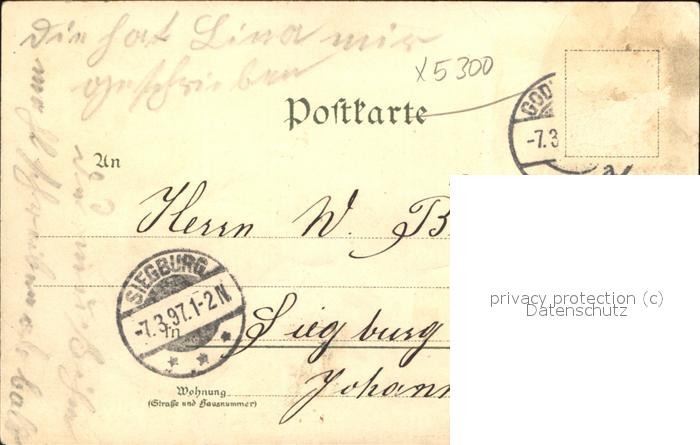 Die hat Lina mir
geschrieben
X5300
Postkarte
GOD
-7.3
An
Herrn W. B
SIEGBURG
-7.3.97.1-2N
In
Siegburg
Johann
Wohnung
(Straße und Hausnummer)
privacy protection (c)
Datenschutz